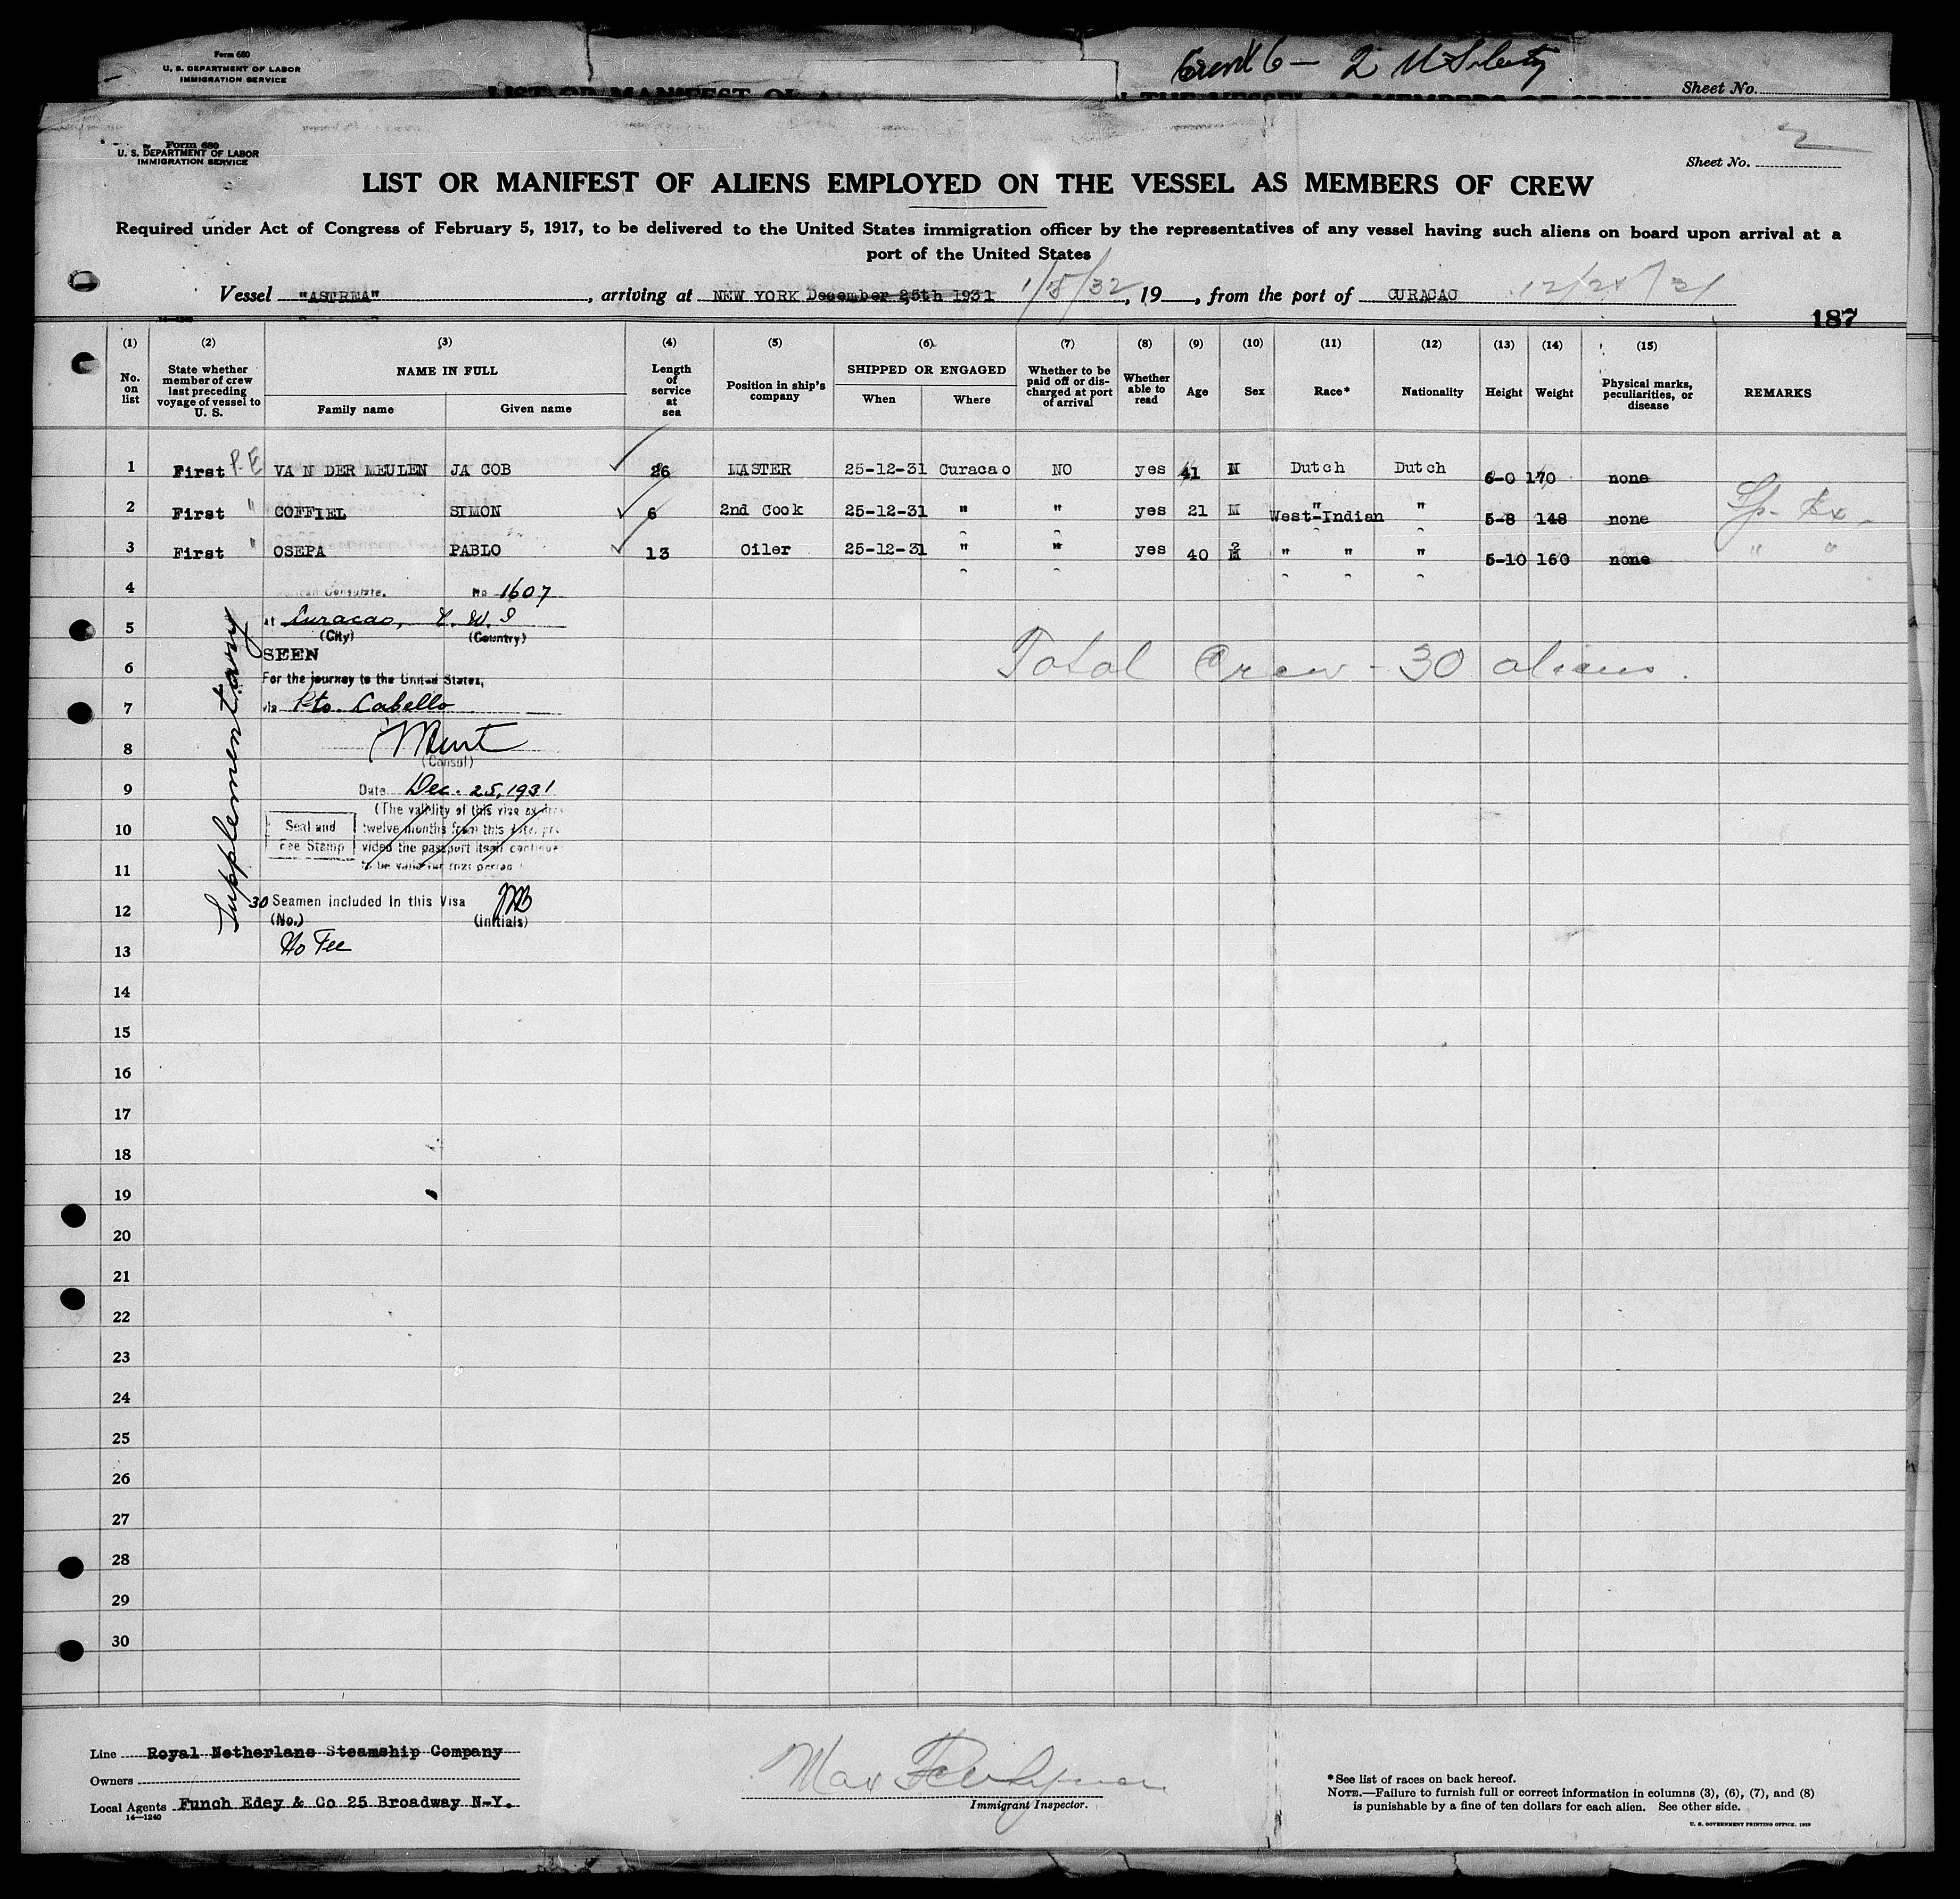 Form 680
U. S. DEPARTMENT OF LABOR
IMMIGRATION SERVICE
6 — 2
Sheet No.
Form 680
U. S. DEPARTMENT OF LABOR
IMMIGRATION SERVICE
2
Sheet No.
LIST OR MANIFEST OF ALIENS EMPLOYED ON THE VESSEL AS MEMBERS OF CREW
Required under Act of Congress of February 5, 1917, to be delivered to the United States immigration officer by the representatives of any vessel having such aliens on board upon arrival at a
port of the United States
Vessel "ASTREA", arriving at NEW YORK December 25th 1931 1/5/32, 19__, from the port of CURACAO
187
(1) (2) (3) (4) (5) (6) (7) (8) (9) (10) (11) (12) (13) (14) (15)
No. on list State whether member of crew last preceding voyage of vessel to U. S. NAME IN FULL Family name Given name Length of service at sea Position in ship's company SHIPPED OR ENGAGED When Where Whether to be paid off or discharged at port of arrival Whether able to read Age Sex Race* Nationality Height Weight Physical marks, peculiarities, or disease REMARKS
1 First P.E VA N DER MEULEN JA COB 26 MASTER 25-12-31 Curacao NO yes 41 M Dutch Dutch 6-0 170 none
2 First " COFFIEL SIMON 6 2nd Cook 25-12-31 " " yes 21 M West-Indian " 5-8 148 none Sp. Ex.
3 First " OSEPA PABLO 13 Oiler 25-12-31 " " yes 40 M " " " 5-10 160 none " "
4 Consulate. No 1607
5 at Curacao, W. I
(City) (Country)
6 SEEN
Total Crew - 30 aliens.
For the journey to the United States,
7 via Pto. Cabello
8
(Consul)
9 Date Dec. 25, 1931
(The validity of this visa
10 Seal and twelve months from this date, pro
Fee Stamp vided the passport itself continue
11 to be valid for that period
Supplementary
12 30 Seamen included in this Visa
(No.) (initials)
13 No Fee
14
15
16
17
18
19
20
21
22
23
24
25
26
27
28
29
30
Line Royal Netherlans Steamship Company
Owners
Local Agents Funch Edey & Co 25 Broadway N-Y.
14—1240
Max
Immigrant Inspector.
*See list of races on back hereof.
NOTE.—Failure to furnish full or correct information in columns (3), (6), (7), and (8)
is punishable by a fine of ten dollars for each alien. See other side.
U. S. GOVERNMENT PRINTING OFFICE. 1929